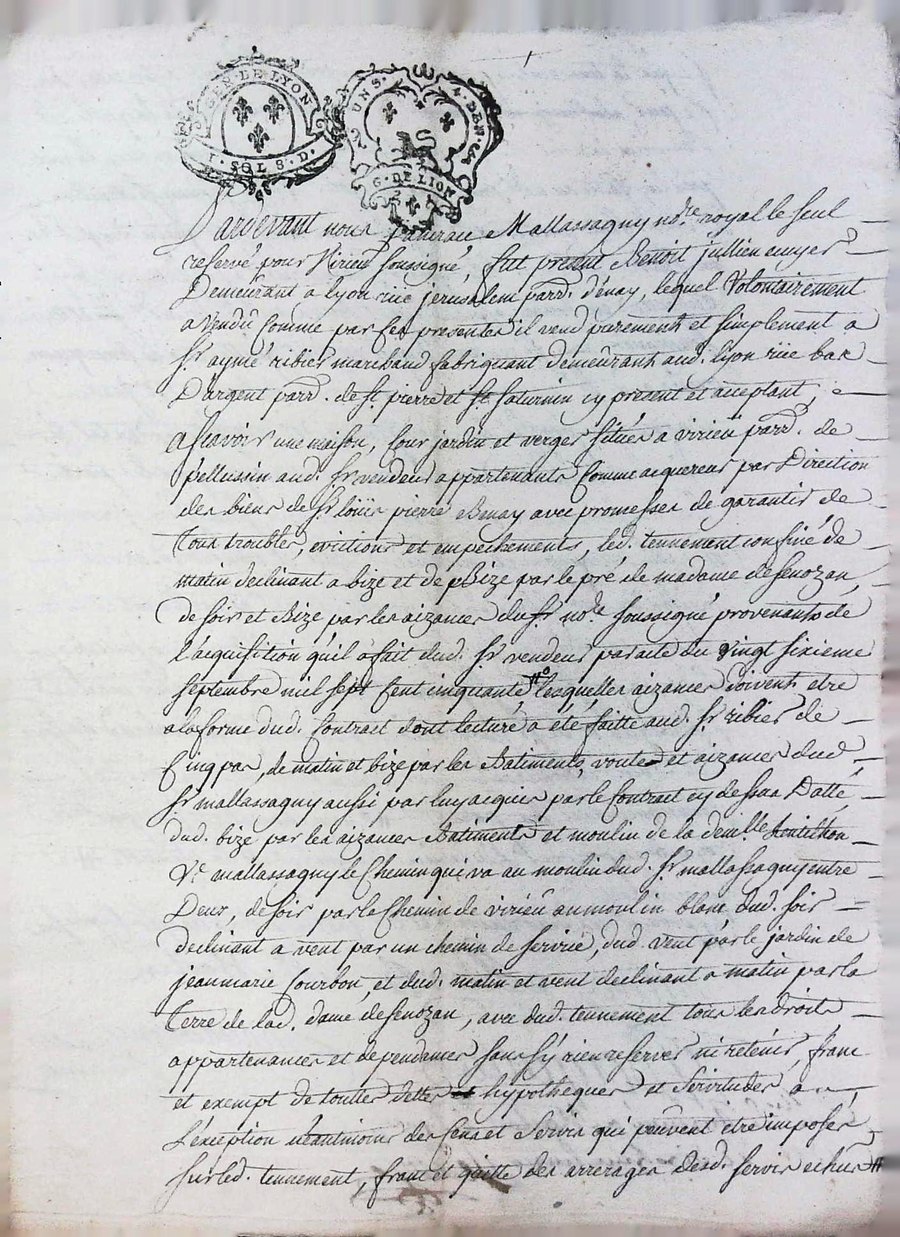 GEN. DE LYON
1. SOL 8. D.
UN S. 4. DEN. S
G. DE LION
Pardevant nous Mallassagny no.re royal le seul
reservé pour Virieu soussigné, fut present Benoit jullien ecuyer
Demeurant a Lyon rüe jerusalem paroi. d'enay, lequel Volontairement
a Vendû comme par ces presentes il vend purement et simplement a
Sr. aymé ribier marchand fabriquant demeurant aud. lyon rüe bas
D'argent paroi. de St. pierre et St. Saturnin cy present et acceptant,
ascavoir une maison, Cour jardin et verger situés a virieu paroi. de
pellussin aud. Sr. vendeur appartenants Comme acquereur par Direction
des biens de Sr. loüis pierre Benay avec promesses de garantir de
Tous troubles, evictions et empechements, led. tennement confiné de
matin declinant a bize et de Bize par le pré de madame de Senozan,
de soir et Bize par les aizances du Sr. no.re soussigné provenants de
l'acquisition qu'il a fait dud. Sr. vendeur par acte du vingt sixieme
septembre mil sept Cent cinquante, lesquelles aizances doivent etre
a la forme dud. Contract dont lecture a été faitte aud. Sr. ribier de
Cinq pas, de matin et bize par les Batiments, voute et aizances dud.
Sr. mallassagny aussi par luy acquis par le Contract cy dessus Datté,
dud. bize par les aizances Batiments et moulin de la dem.lle
Ve. mallassagny le Chemin qui va au moulin dud. Sr. mallassagny entre
Deux, de soir par le Chemin de virieu au moulin blanc dud. soir
declinant a vent par un chemin de service, dud. vent par le jardin de
jean marie Courbon, et dud. matin et vent declinant a matin par la
Terre de lad. dame de Senozan, avec dud. tennement tous les droits
appartenances et dependances sans s'y rien reserver ni retenir, franc
et exempt de touttes dettes hypotheques et Servitudes a
L'exception néantmoins des Cens et Servis qui peuvent être imposés
sur led. tennement, franc et quitte des arrerages desd. servis echus